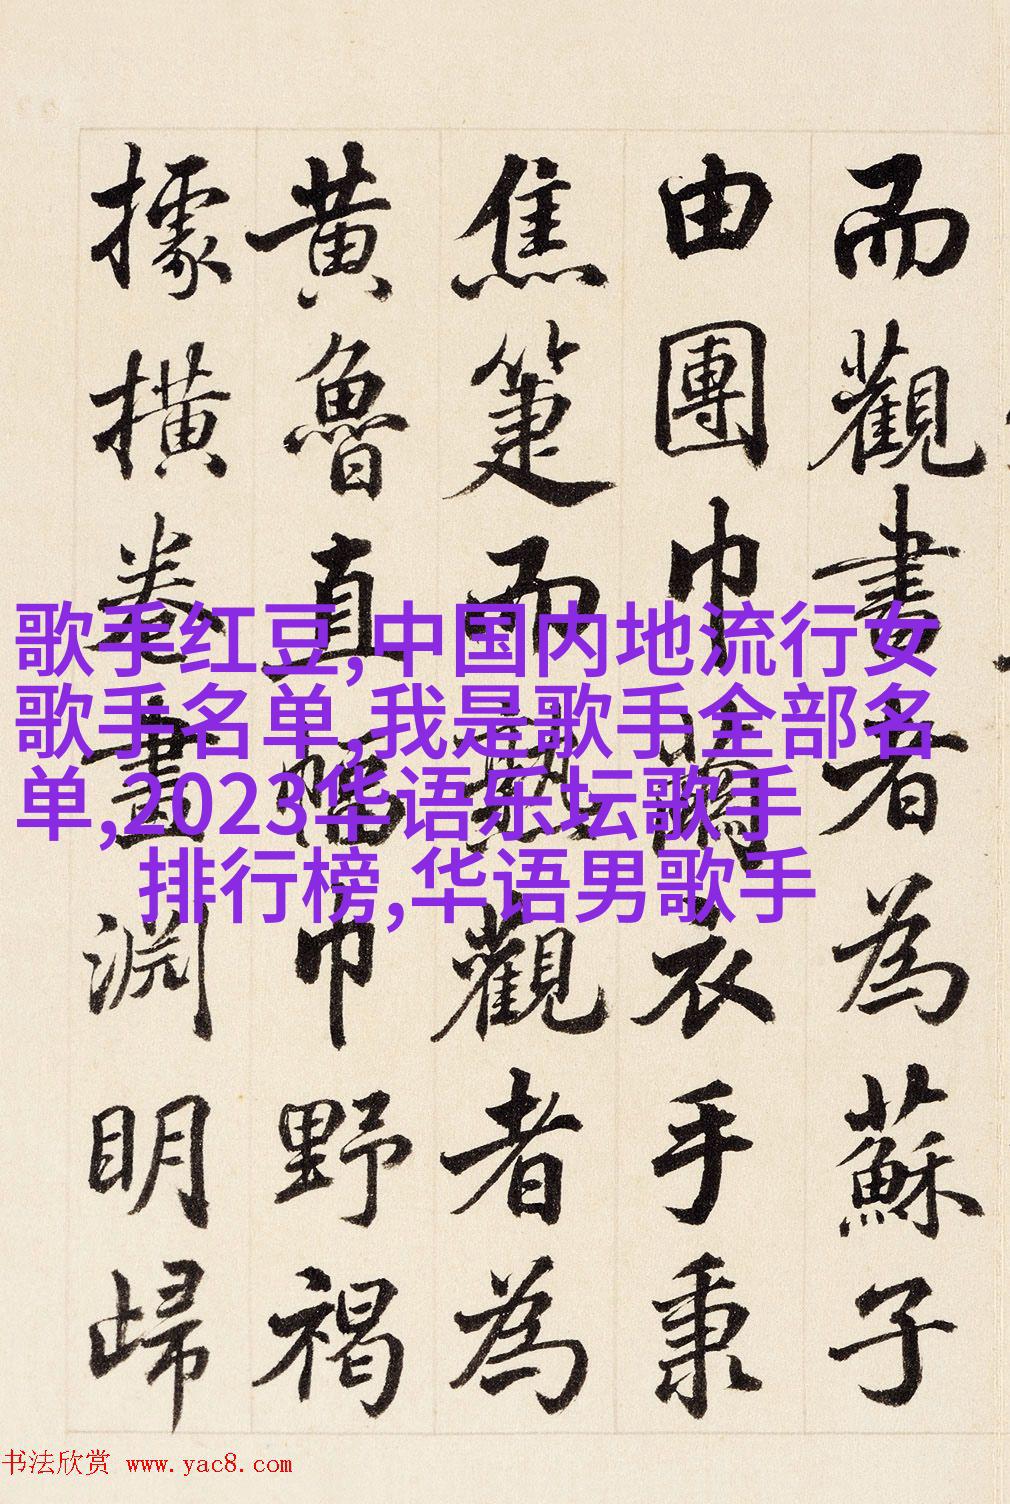 而觀書者為蘇子
由團巾繭衣手秉
焦箑而熟觀者為
黃魯直幅巾野褐
據橫卷畫淵明歸
歌手红豆,中国内地流行女
歌手名单,我是歌手全部名
单,2023华语乐坛歌手
排行榜,华语男歌手
书法欣赏 www.yac8.com